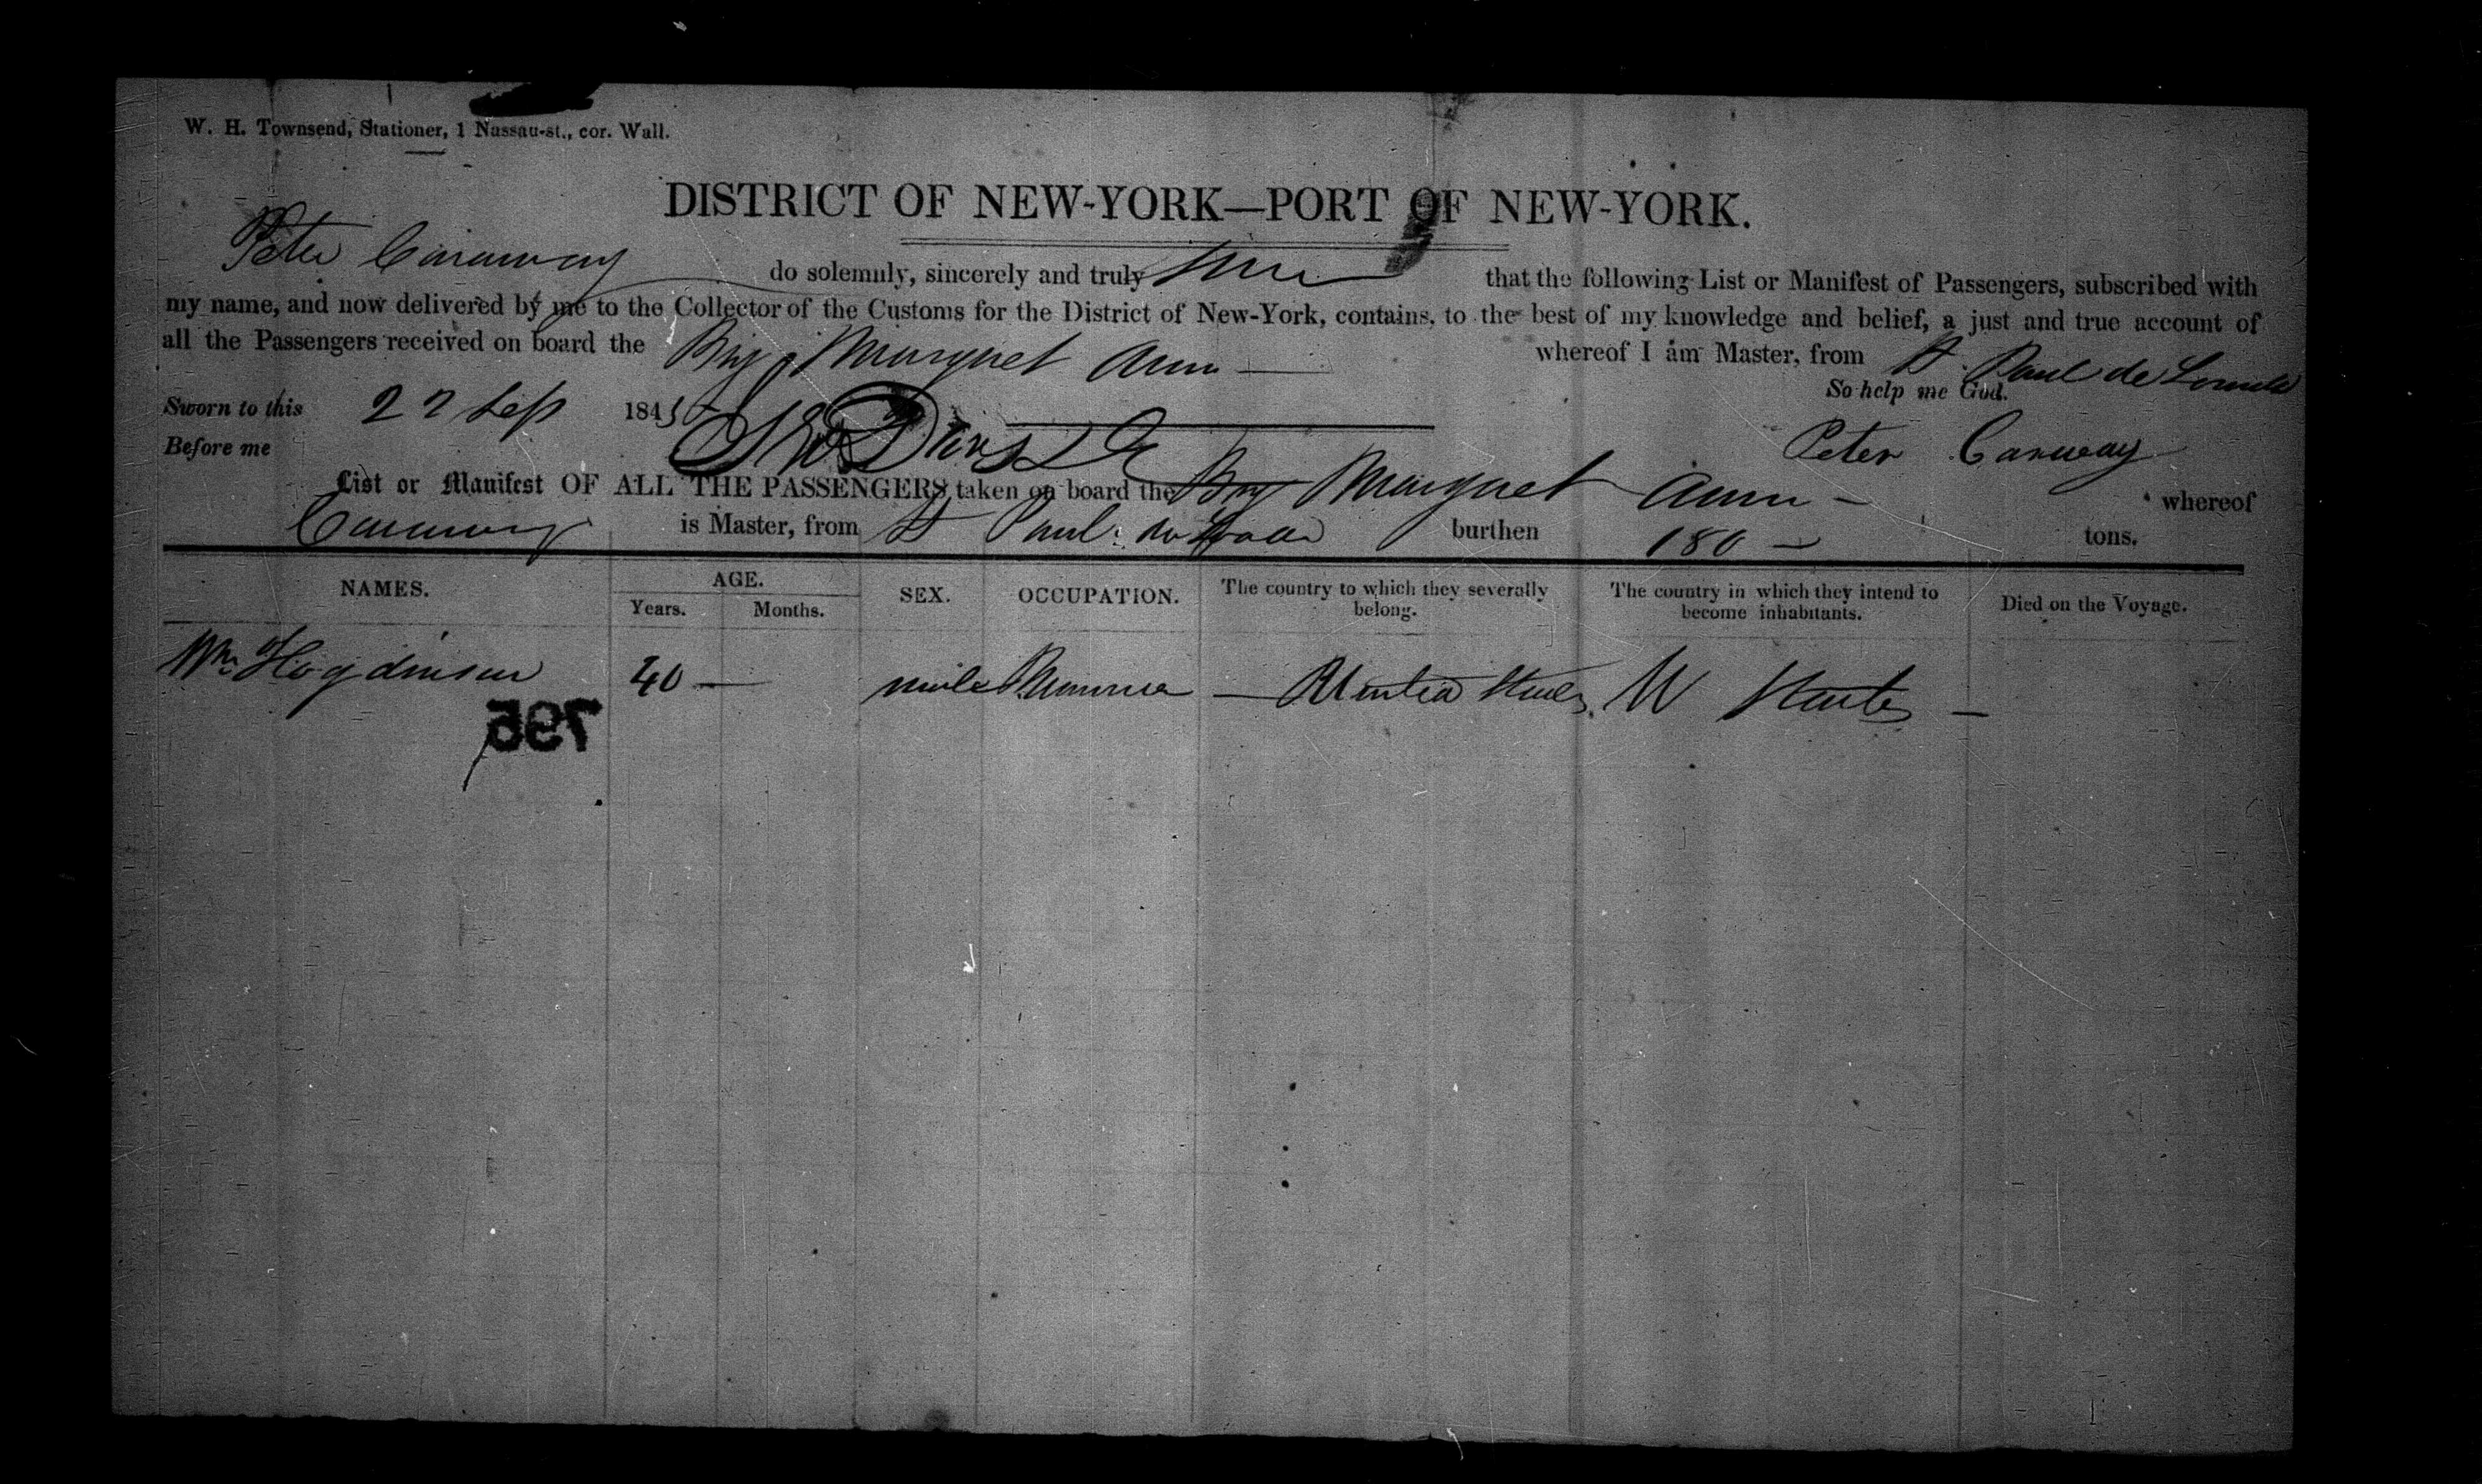 W. H. Townsend, Stationer, 1 Nassau-st., cor. Wall.
DISTRICT OF NEW-YORK—PORT OF NEW-YORK.
Peter Caraway do solemnly, sincerely and truly that the following List or Manifest of Passengers, subscribed with
my name, and now delivered by me to the Collector of the Customs for the District of New-York, contains, to the best of my knowledge and belief, a just and true account of
all the Passengers received on board the Brig Margret Ann whereof I am Master, from St Paul de
So help me God.
Sworn to this 27 Sep 1845
Before me Peter Carway
List or Manifest OF ALL THE PASSENGERS taken on board the Brig Margret Ann whereof
Caraway is Master, from St Paul burthen 180 tons.
NAMES. AGE. Years. Months. SEX. OCCUPATION. The country to which they severally belong. The country in which they intend to become inhabitants. Died on the Voyage.
Wm Hogdinson 40 male Marina United States U States
795